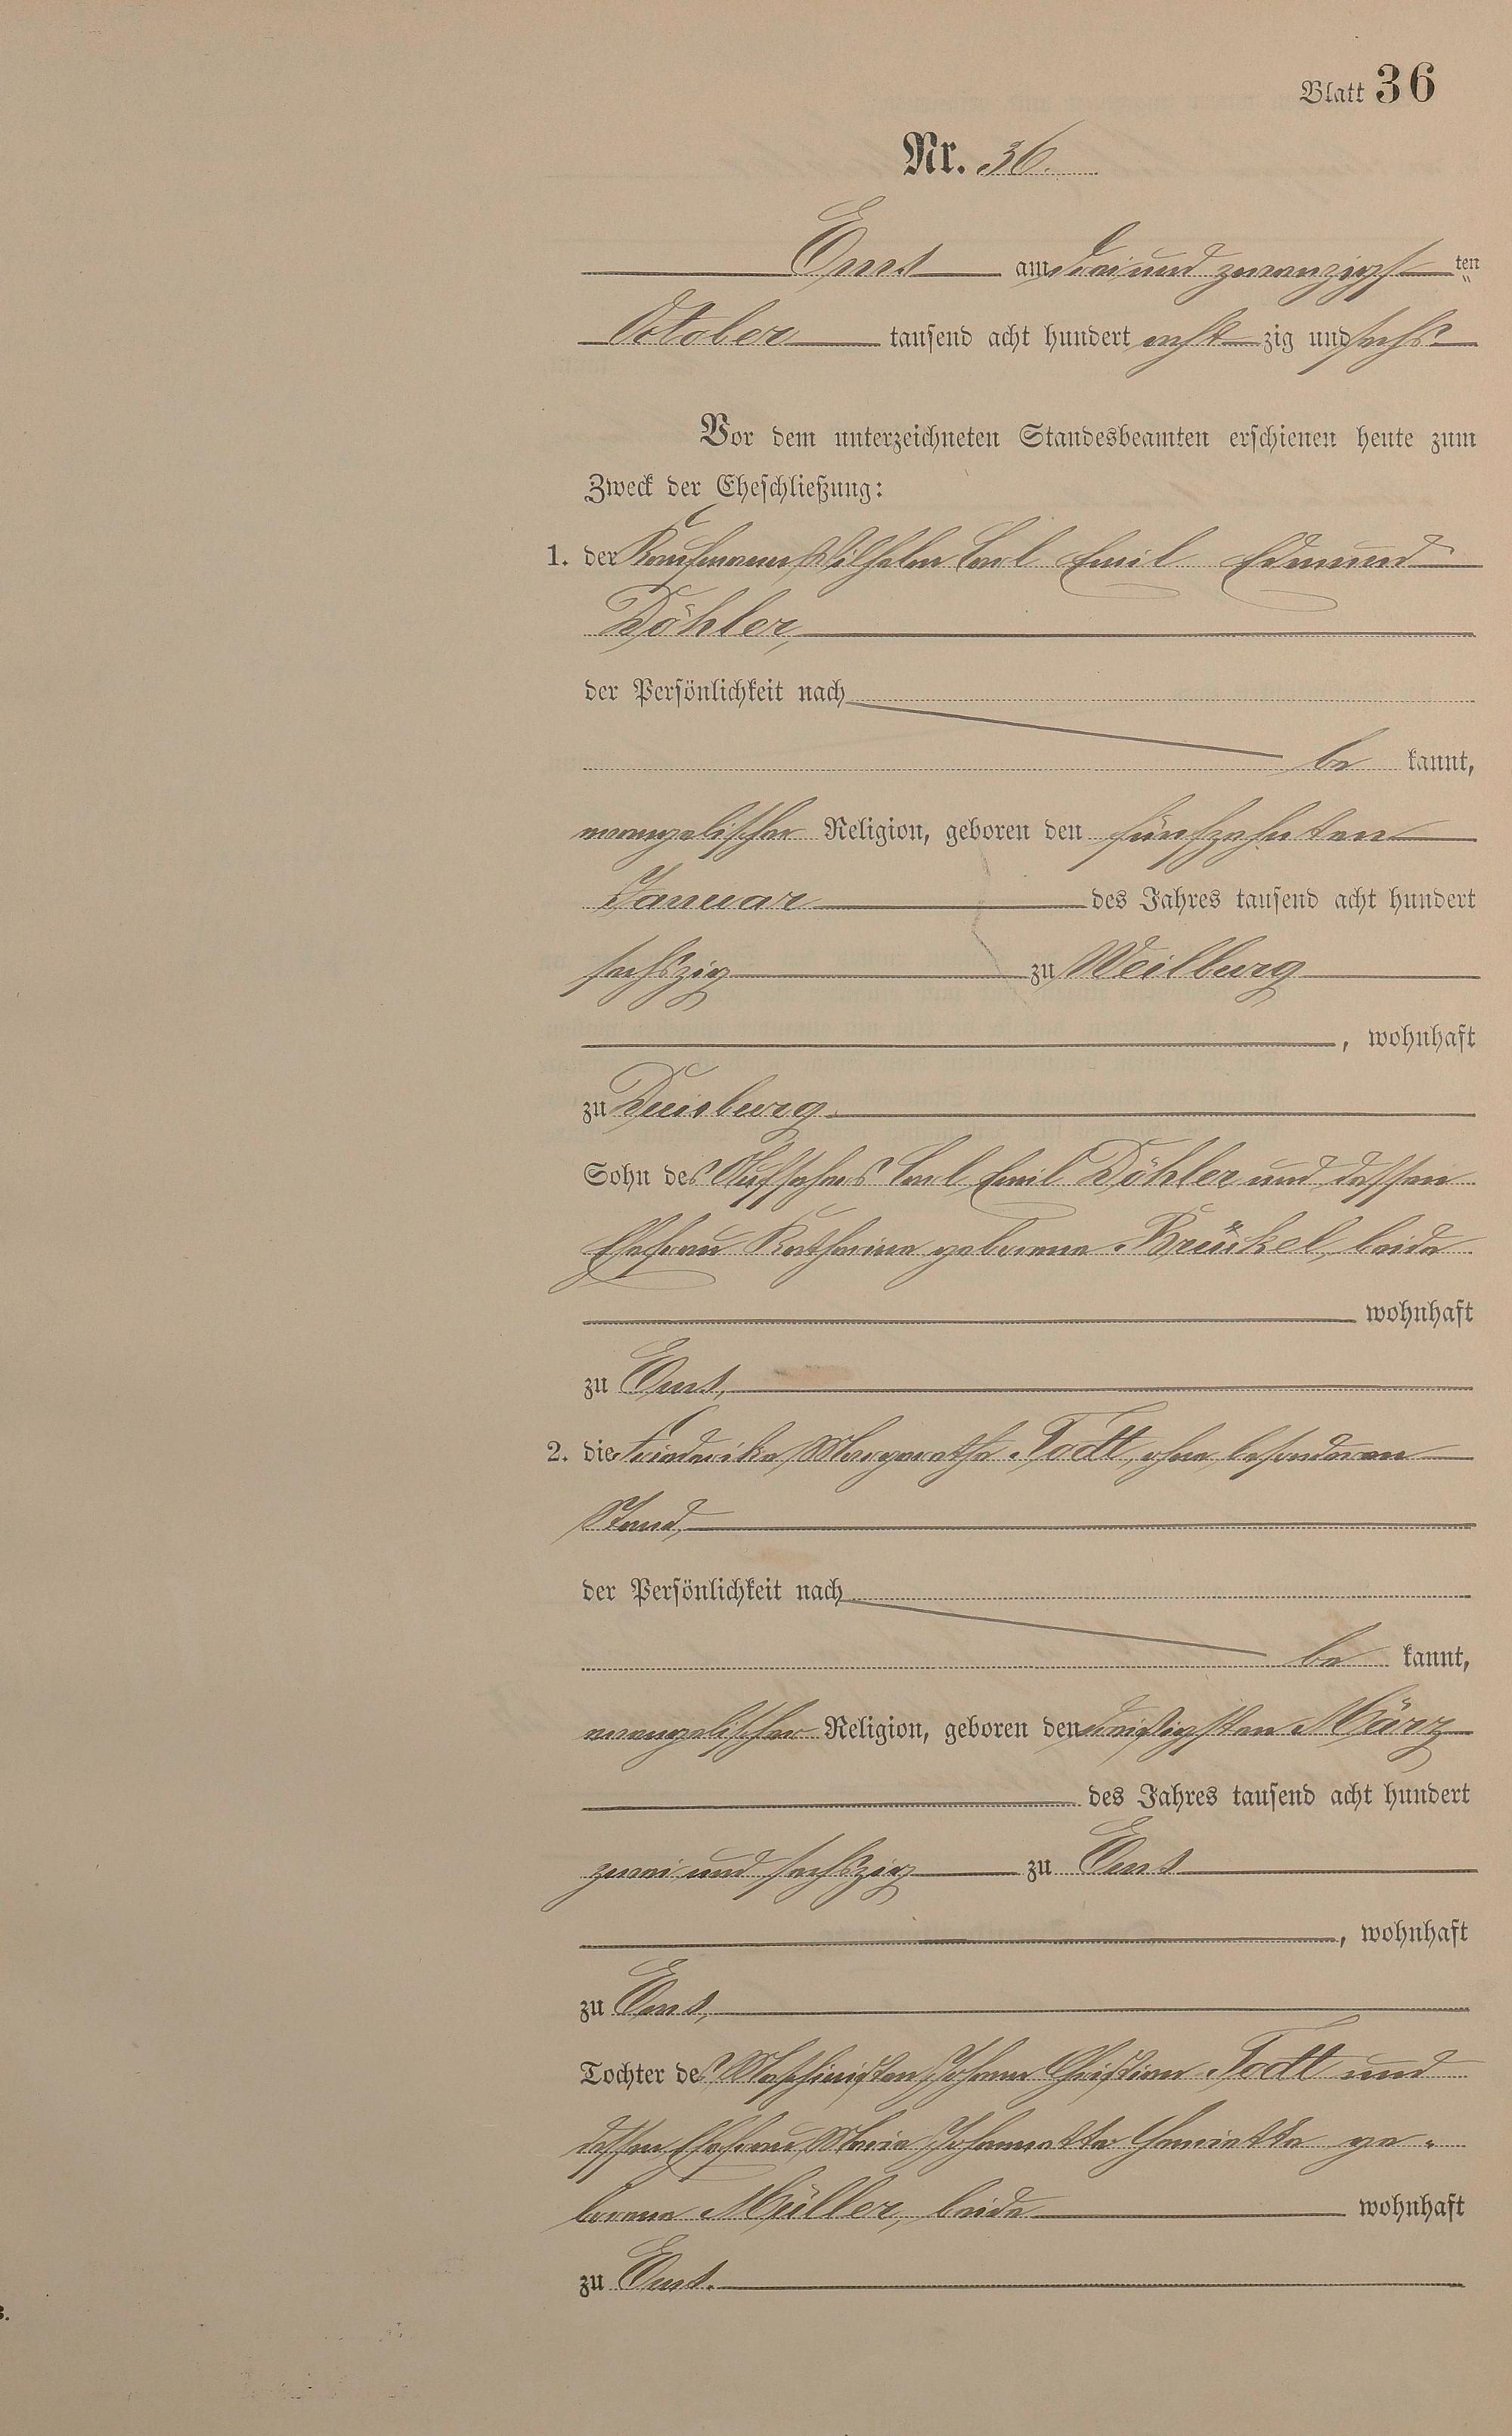 Blatt 36
Nr. 36.
Ems am drei und zwanzigst ten
October tausend acht hundert acht zig und sechs
Vor dem unterzeichneten Standesbeamten erschienen heute zum
Zweck der Eheschließung:
1. der Kaufmann Wilhelm Carl Emil Edmund
Döhler,
der Persönlichkeit nach
be kannt,
evangelischer Religion, geboren den fünfzehnten
Januar des Jahres tausend acht hundert
sechszig zu Weilburg
, wohnhaft
zu Duisburg
Sohn des Aufsehers Carl Emil Döhler und dessen
Ehefrau Katharina geborene Brückel, beide
wohnhaft
zu Ems,
2. die Friederike Margarethe Todt, ohne besonderen
Stand,
der Persönlichkeit nach
be kannt,
evangelischer Religion, geboren den dreißigsten März
des Jahres tausend acht hundert
zwei und sechszig zu Ems
, wohnhaft
zu Ems,
Tochter des Maschinisten Johann Christian Todt und
dessen Ehefrau Maria Johannette Henriette ge-
borene Müller, beide wohnhaft
zu Ems.